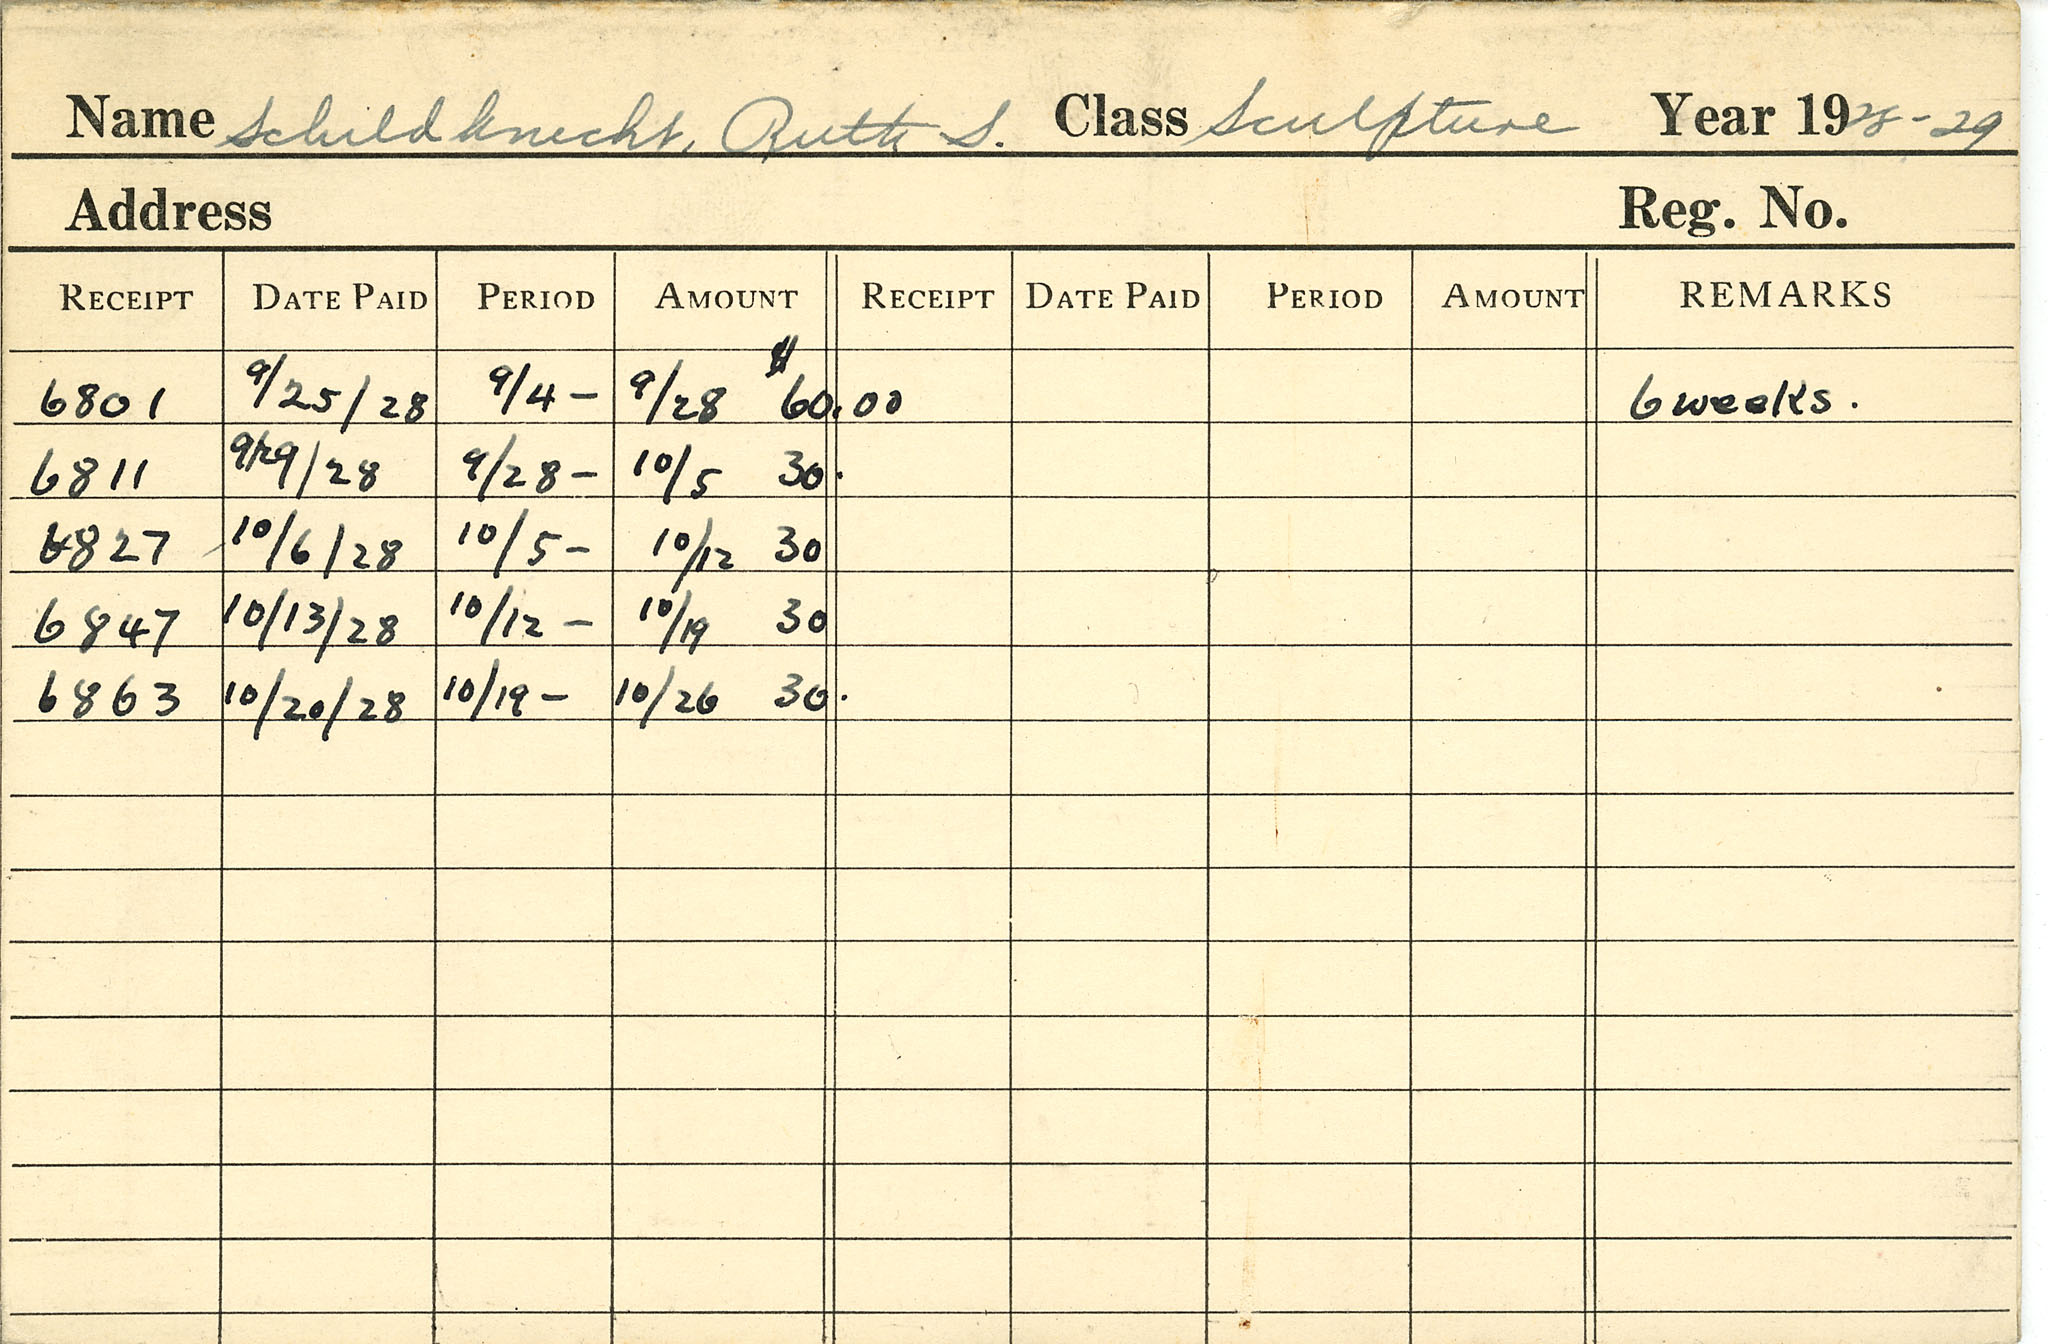 Name Schildknecht, Ruth S. Class Sculpture Year 1928-29
Address Reg. No.
RECEIPT DATE PAID PERIOD AMOUNT RECEIPT DATE PAID PERIOD AMOUNT REMARKS
6801 9/25/28 9/4- 9/28 $60.00 6 weeks.
6811 9/29/28 9/28- 10/5 30.
6827 10/6/28 10/5- 10/12 30
6847 10/13/28 10/12- 10/19 30
6863 10/20/28 10/19- 10/26 30.